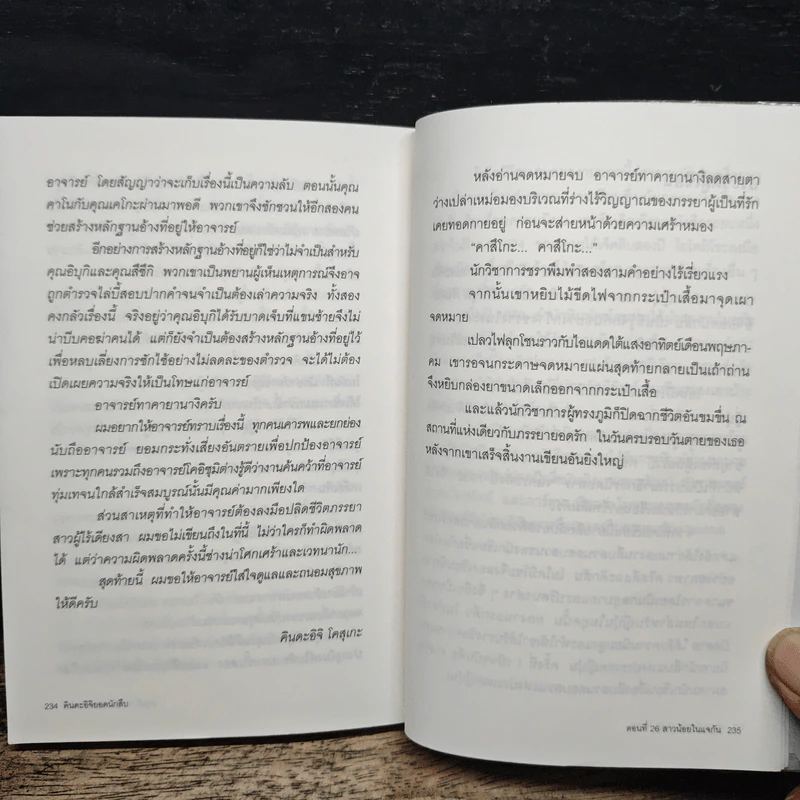 อาจารย์ โดยสัญญาว่าจะเก็บเรื่องนี้เป็นความลับ ตอนนั้นคุณ
คาโนกับคุณเคโกะผ่านมาพอดี พวกเขาจึงชักชวนให้อีกสองคน
ช่วยสร้างหลักฐานอ้างที่อยู่ให้อาจารย์
อีกอย่างการสร้างหลักฐานอ้างที่อยู่ก็ใช่ว่าไม่จำเป็นสำหรับ
คุณอิบุกิและคุณสึซึกิ พวกเขาเป็นพยานผู้เห็นเหตุการณ์จึงอาจ
ถูกตำรวจไล่บี้สอบปากคำจนจำเป็นต้องเล่าความจริง ทั้งสอง
คงกลัวเรื่องนี้ จริงอยู่ว่าคุณอิบุกิได้รับบาดเจ็บที่แขนซ้ายจึงไม่
น่าบีบคอฆ่าคนได้ แต่ก็ยังจำเป็นต้องสร้างหลักฐานอ้างที่อยู่ไว้
เพื่อหลบเลี่ยงการซักไซ้อย่างไม่ลดละของตำรวจ จะได้ไม่ต้อง
เปิดเผยความจริงให้เป็นโทษแก่อาจารย์
อาจารย์ทาคายานางิครับ
ผมอยากให้อาจารย์ทราบเรื่องนี้ ทุกคนเคารพและยกย่อง
นับถืออาจารย์ ยอมกระทั่งเสี่ยงอันตรายเพื่อปกป้องอาจารย์
เพราะทุกคนรวมถึงอาจารย์โคอิซุมิต่างรู้ดีว่างานค้นคว้าที่อาจารย์
ทุ่มเทจนใกล้สำเร็จสมบูรณ์นั้นมีคุณค่ามากเพียงใด
ส่วนสาเหตุที่ทำให้อาจารย์ต้องลงมือปลิดชีวิตภรรยา
สาวผู้ไร้เดียงสา ผมขอไม่เขียนถึงในที่นี้ ไม่ว่าใครก็ทำผิดพลาด
ได้ แต่ว่าความผิดพลาดครั้งนี้ช่างน่าโศกเศร้าและเวทนานัก...
สุดท้ายนี้ ผมขอให้อาจารย์ใส่ใจดูแลและถนอมสุขภาพ
ให้ดีครับ
คินดะอิจิ โคสุเกะ
234 คินดะอิจิยอดนักสืบ
หลังอ่านจดหมายจบ อาจารย์ทาคายานางิลดสายตา
ว่างเปล่าเหม่อมองบริเวณที่ร่างไร้วิญญาณของภรรยาผู้เป็นที่รัก
เคยทอดกายอยู่ ก่อนจะส่ายหน้าด้วยความเศร้าหมอง
“คาสึโกะ... คาสึโกะ...”
นักวิชาการชราพึมพำสองสามคำอย่างไร้เรี่ยวแรง
จากนั้นเขาหยิบไม้ขีดไฟจากกระเป๋าเสื้อมาจุดเผา
จดหมาย
เปลวไฟลุกโชนราวกับไอแดดใต้แสงอาทิตย์เดือนพฤษภา-
คม เขารอจนกระดาษจดหมายแผ่นสุดท้ายกลายเป็นเถ้าถ่าน
จึงหยิบกล่องยาขนาดเล็กออกจากกระเป๋าเสื้อ
และแล้วนักวิชาการผู้ทรงภูมิก็ปิดฉากชีวิตอันขมขื่น ณ
สถานที่แห่งเดียวกับภรรยายอดรัก ในวันครบรอบวันตายของเธอ
หลังจากเขาเสร็จสิ้นงานเขียนอันยิ่งใหญ่
ตอนที่ 26 สาวน้อยในแจกัน 235